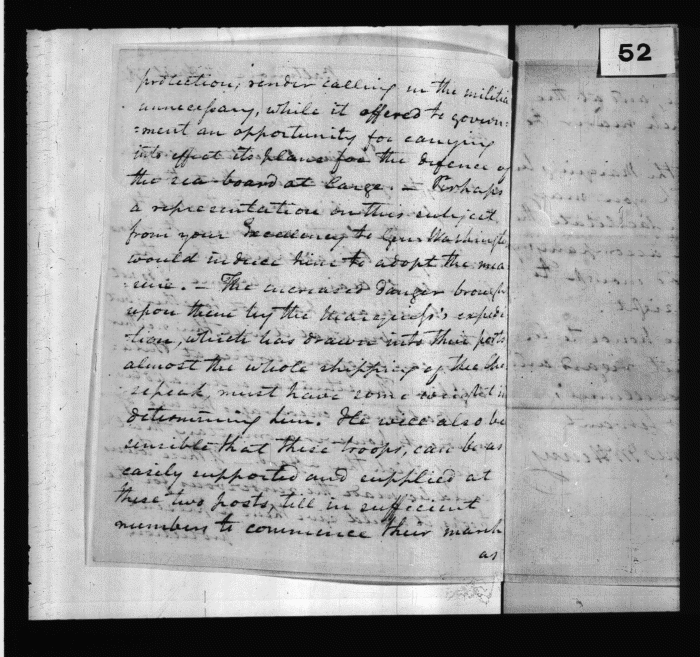 52
protection, render calling in the militia
unnecessary, while it offered to govern=
=ment an opportunity for carrying
into effect its plans for the defence of
the sea-board at large. — Perhaps
a representation on this subject
from your Excellency to Genl Washington
would induce him to adopt the mea-
sure. — The increased danger brought
upon them by the Marquess's expedi
tion, which has drawn into their ports
almost the whole shipping of the Che
sepeak, must have some weight in
determining him. He will also be
sensible that these troops, can be as
easily supported and supplied at
these two posts, till in sufficient
numbers to commence their march
as